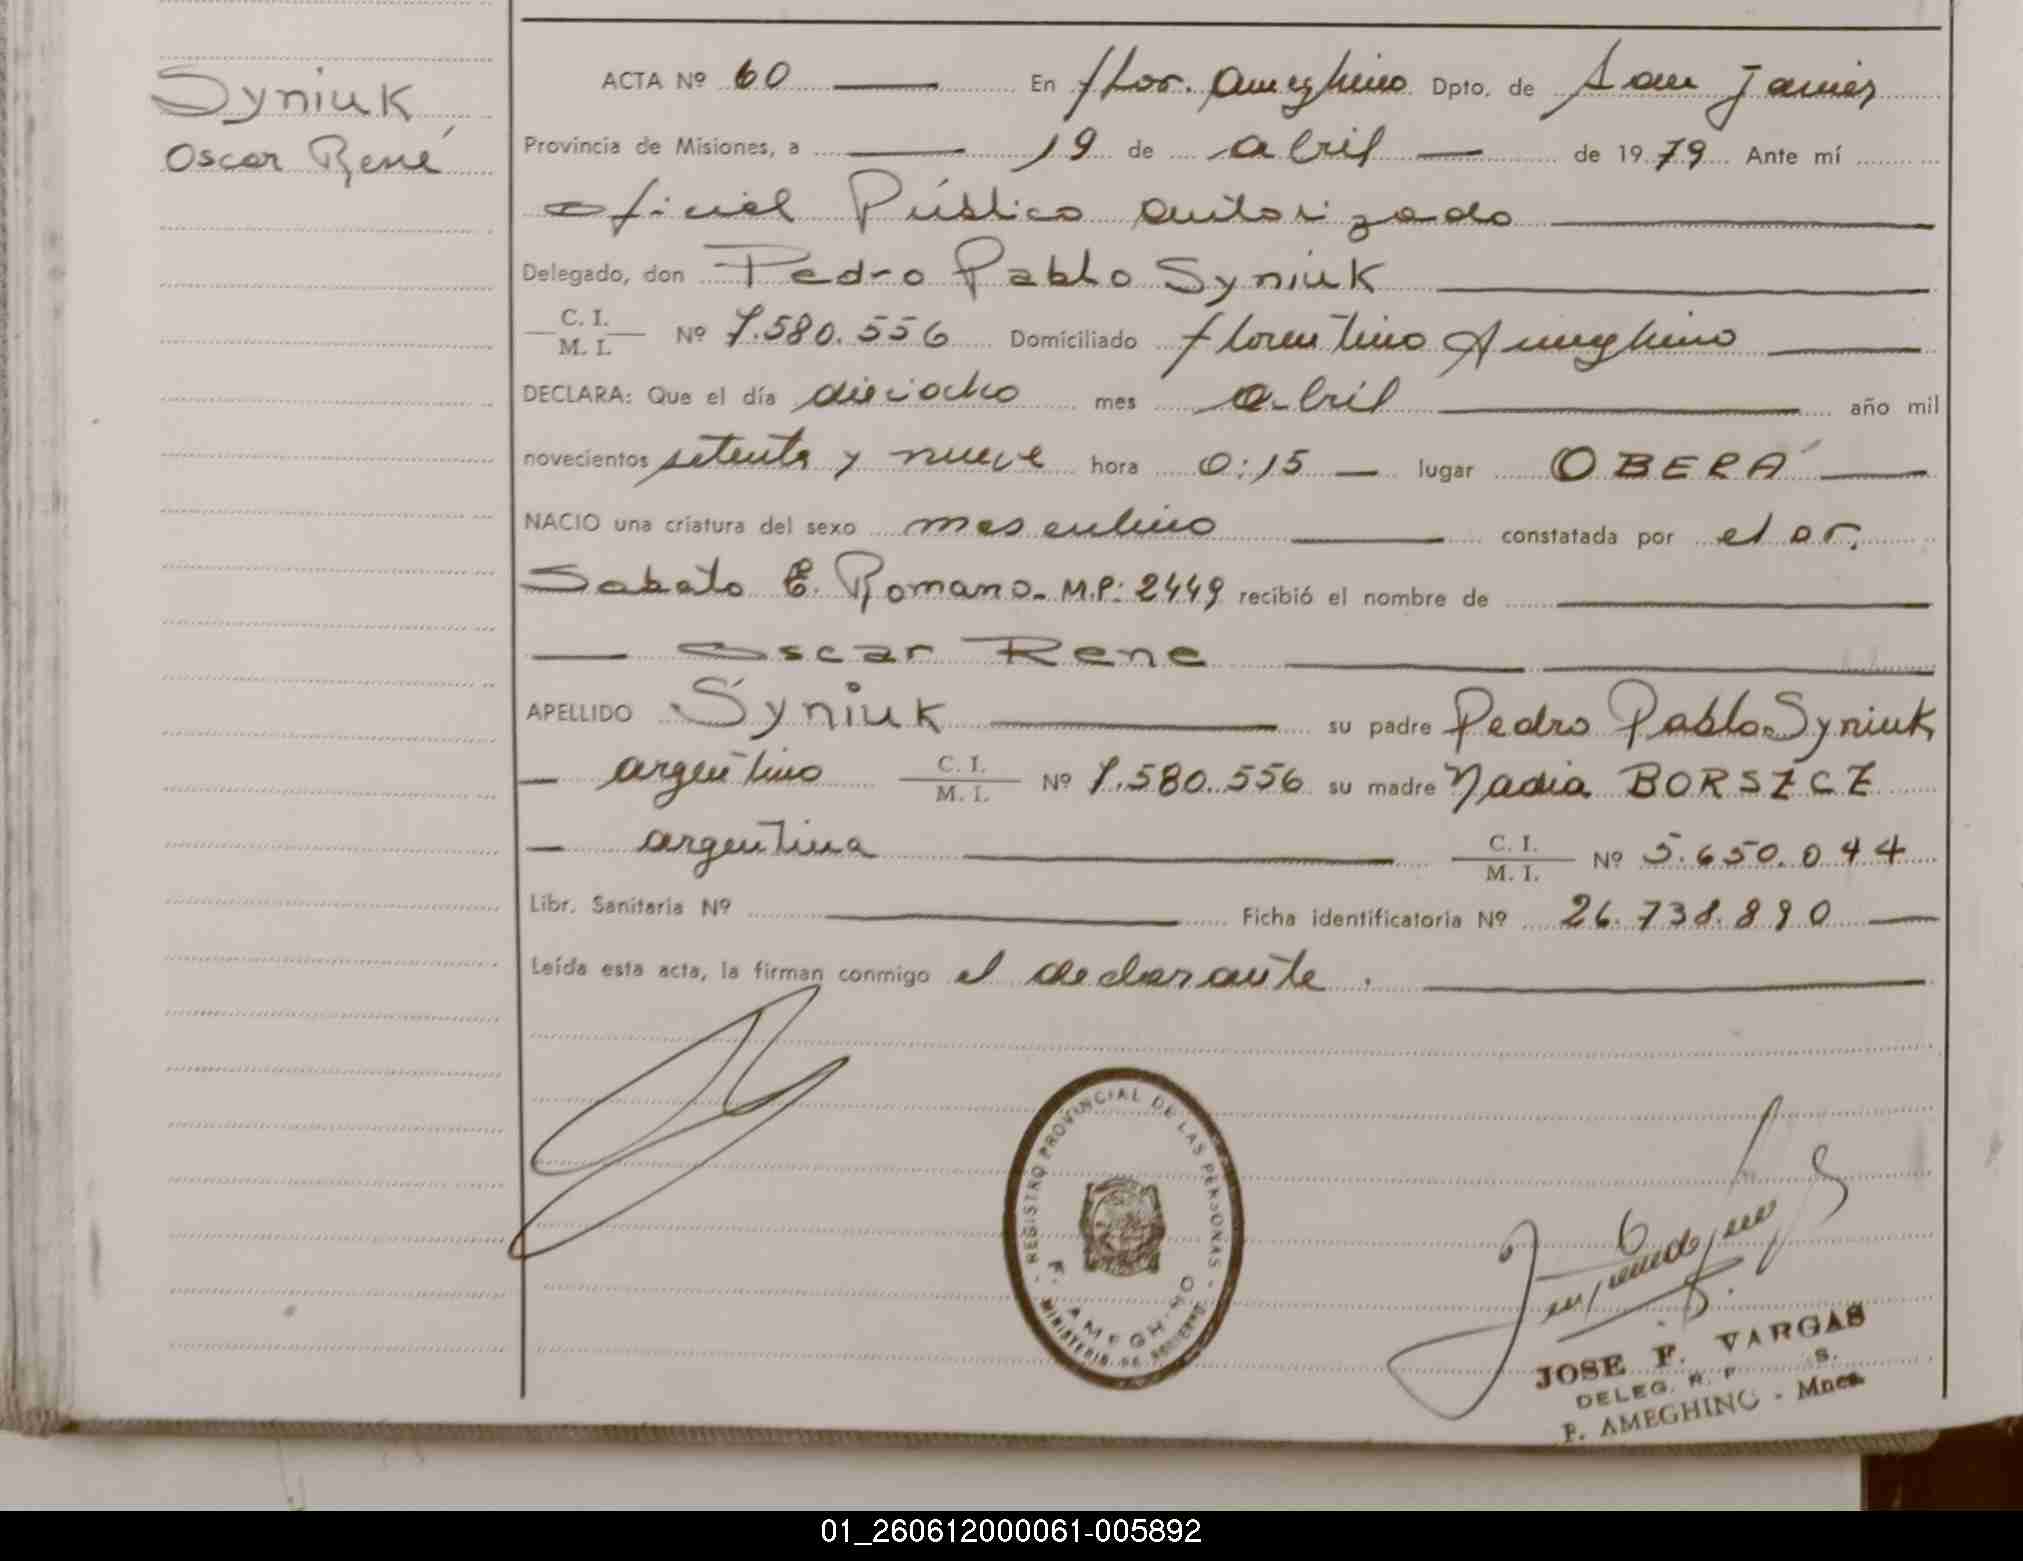 Syniuk
Oscar René
ACTA Nº 60 En flor. Ameghino Dpto. de San Javier
Provincia de Misiones, a 19 de abril de 1979 Ante mí
oficial Público autorizado
Delegado, don Pedro Pablo Syniuk
C. I.
M. I. Nº 7.580.556 Domiciliado florentino Ameghino
DECLARA: Que el día dieciocho mes abril año mil
novecientos setenta y nueve hora 0:15 lugar OBERÁ
NACIO una criatura del sexo masculino constatada por el Dr.
Sabato E. Romano. M.P: 2449 recibió el nombre de
Oscar Rene
APELLIDO Syniuk su padre Pedro Pablo Syniuk
argentino C. I. M. I. Nº 7.580.556 su madre Nadia BORSZCZ
argentina C. I. M. I. Nº 5.650.044
Libr. Sanitaria Nº Ficha identificatoria Nº 26.738.890
Leída esta acta, la firman conmigo el declarante.
REGISTRO PROVINCIAL DE LAS PERSONAS
F. AMEGHINO
MINISTERIO DE GOBIERNO
JOSE F. VARGAS
DELEG. R. P. S.
F. AMEGHINO - Mnes.
01_260612000061-005892